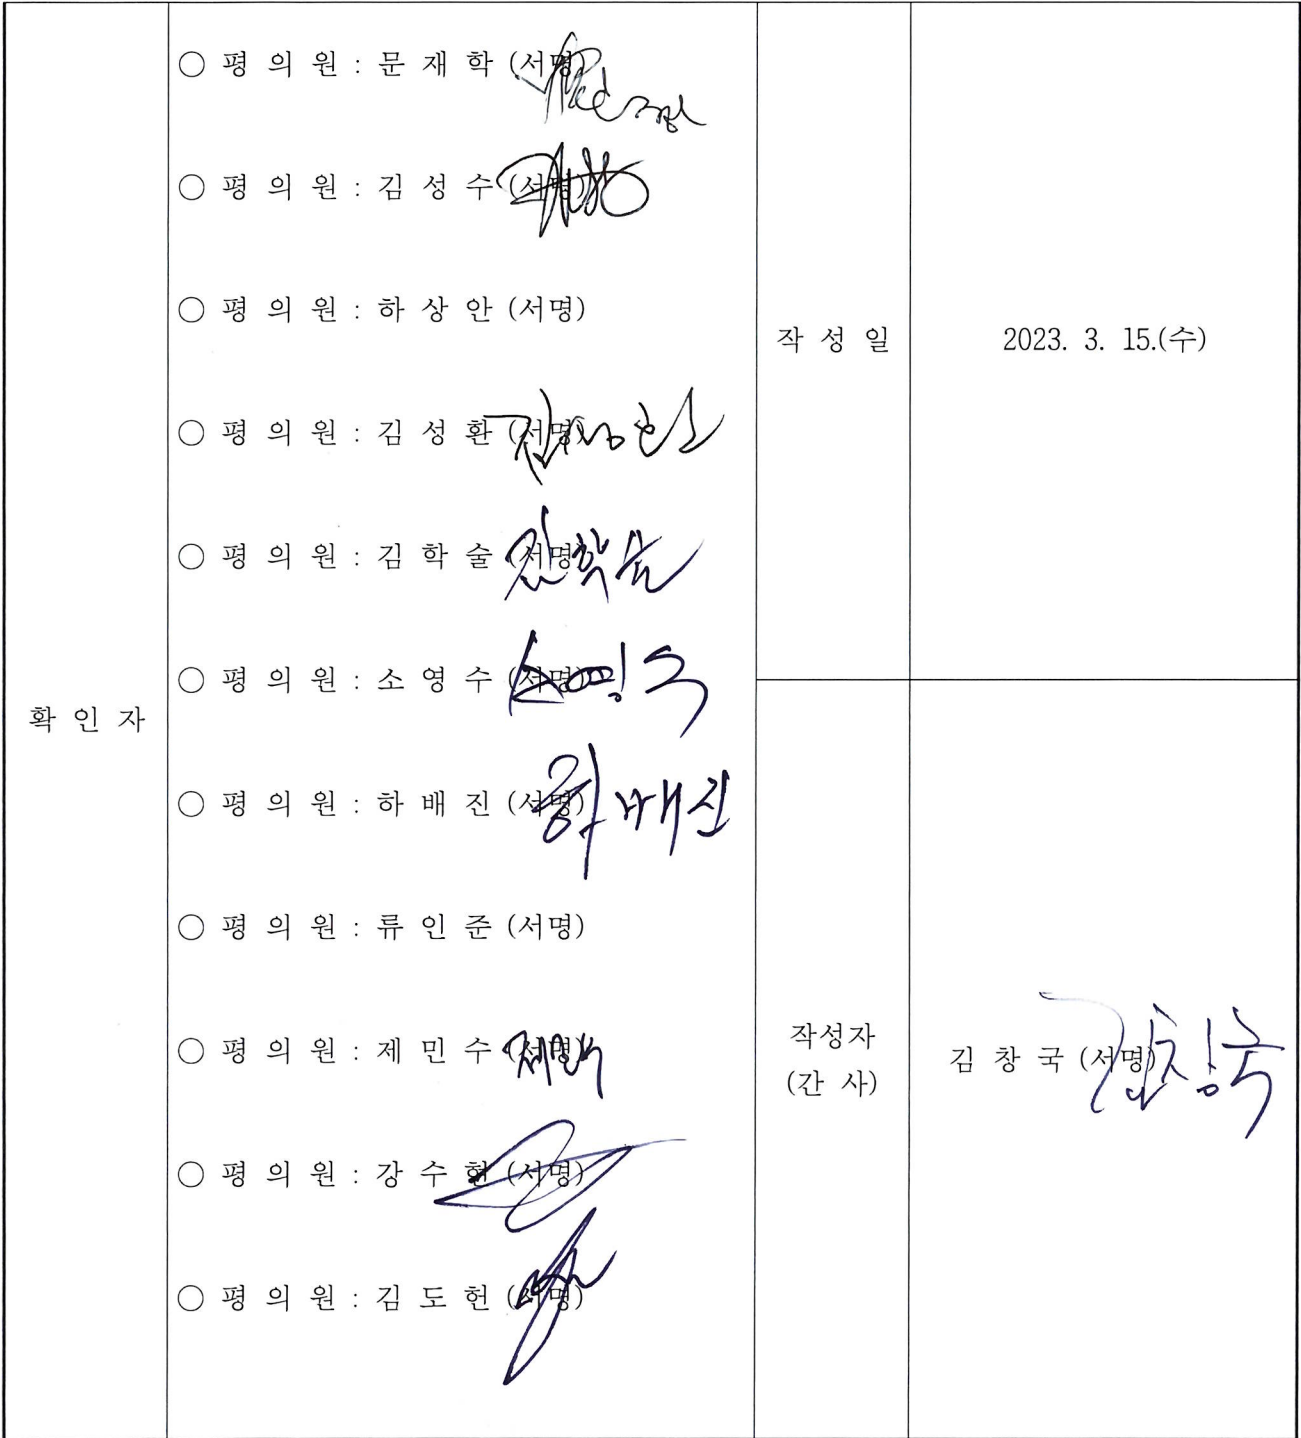 ○ 평 의 원 : 문 재 학 (서명)
○ 평 의 원 : 김 성 수 (서명)
○ 평 의 원 : 하 상 안 (서명)
○ 평 의 원 : 김 성 환 (서명) 김성환
○ 평 의 원 : 김 학 술 (서명) 김학술
○ 평 의 원 : 소 영 수 (서명) 소영수
확 인 자
○ 평 의 원 : 하 배 진 (서명) 하배진
○ 평 의 원 : 류 인 준 (서명)
○ 평 의 원 : 제 민 수 (서명) 제민수
○ 평 의 원 : 강 수 현 (서명)
○ 평 의 원 : 김 도 헌 (서명)
작 성 일
2023. 3. 15.(수)
작성자
(간 사)
김 창 국 (서명) 김창국